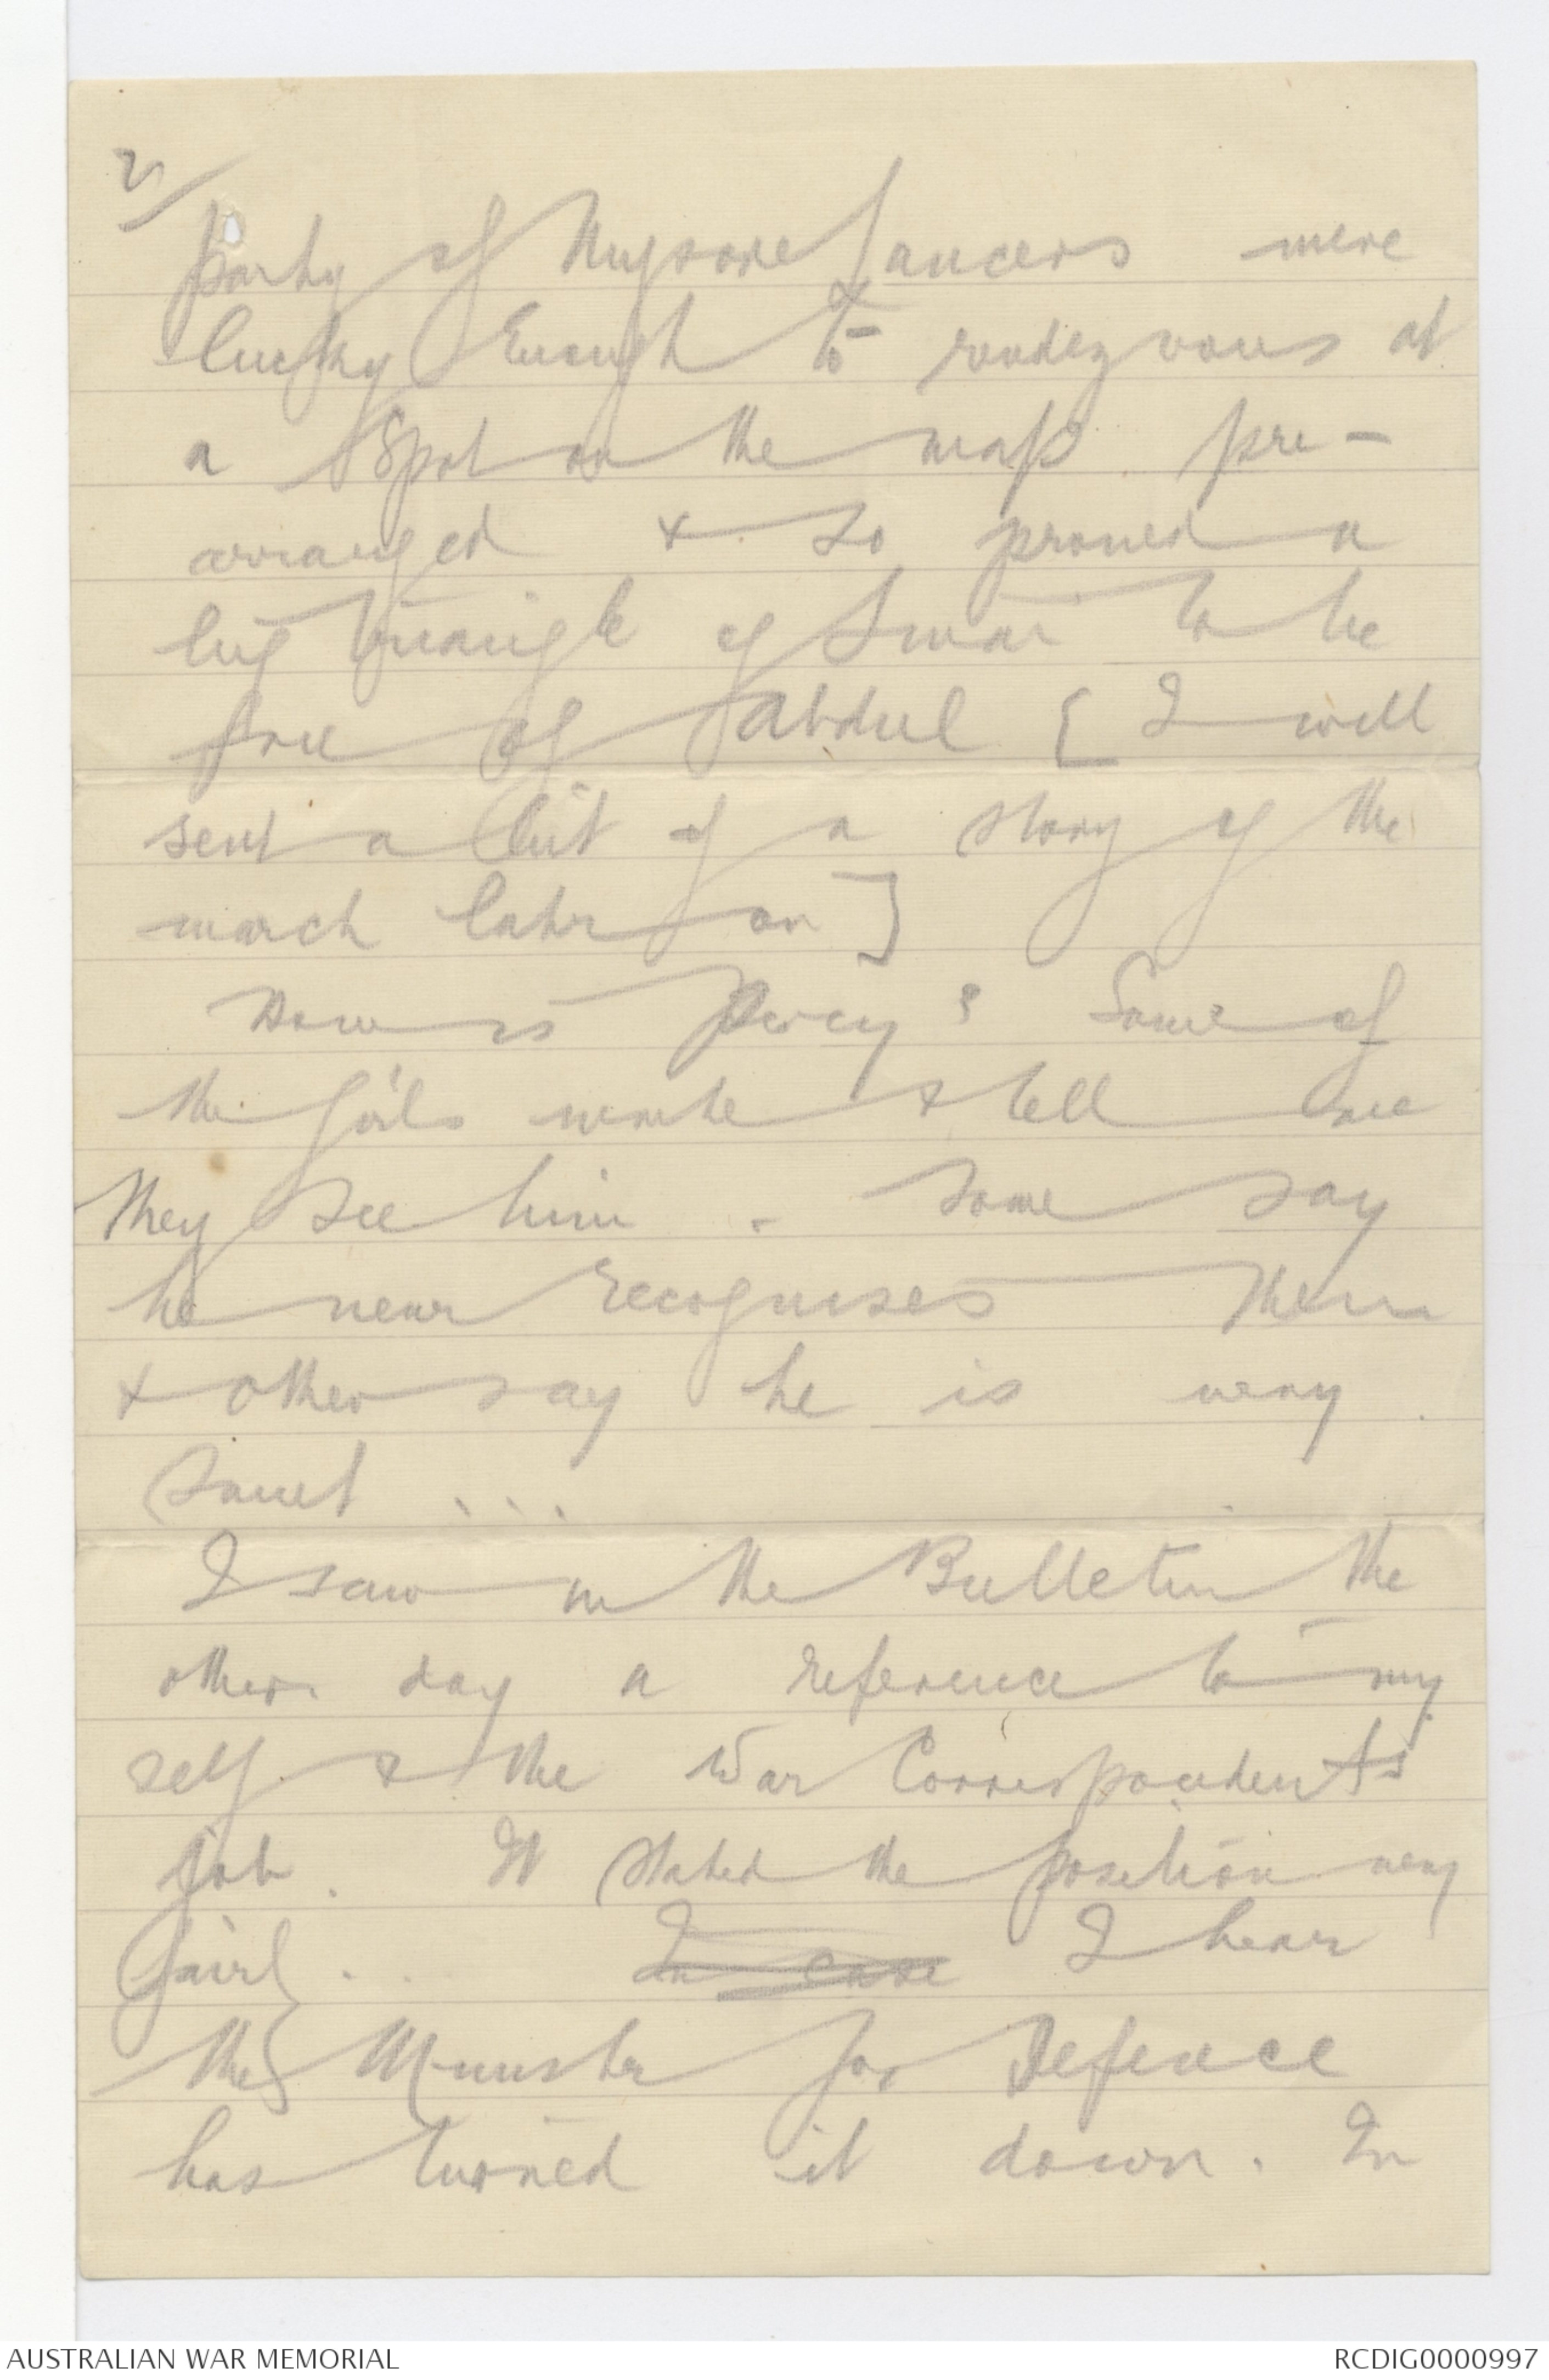 2/
party of Mysore Lancers were
lucky Enough to rendezvous at
a Spot on the map pre-
arranged & so proved a
big triangle of Sinai to be
free of Abdul [I will
sent a bit of a story of the
march later on]
How is Percy? Some of
the girls wrote & tell me
they see him. Some say
he never recognises them
& other say he is very
sweet ...
I saw in the Bulletin the
other day a reference to my
self & the War Correspondents
job. It stated the position very
fairly.. In case I hear
the Minister for Defence
has turned it down. In
AUSTRALIAN WAR MEMORIAL
RCDIG0000997